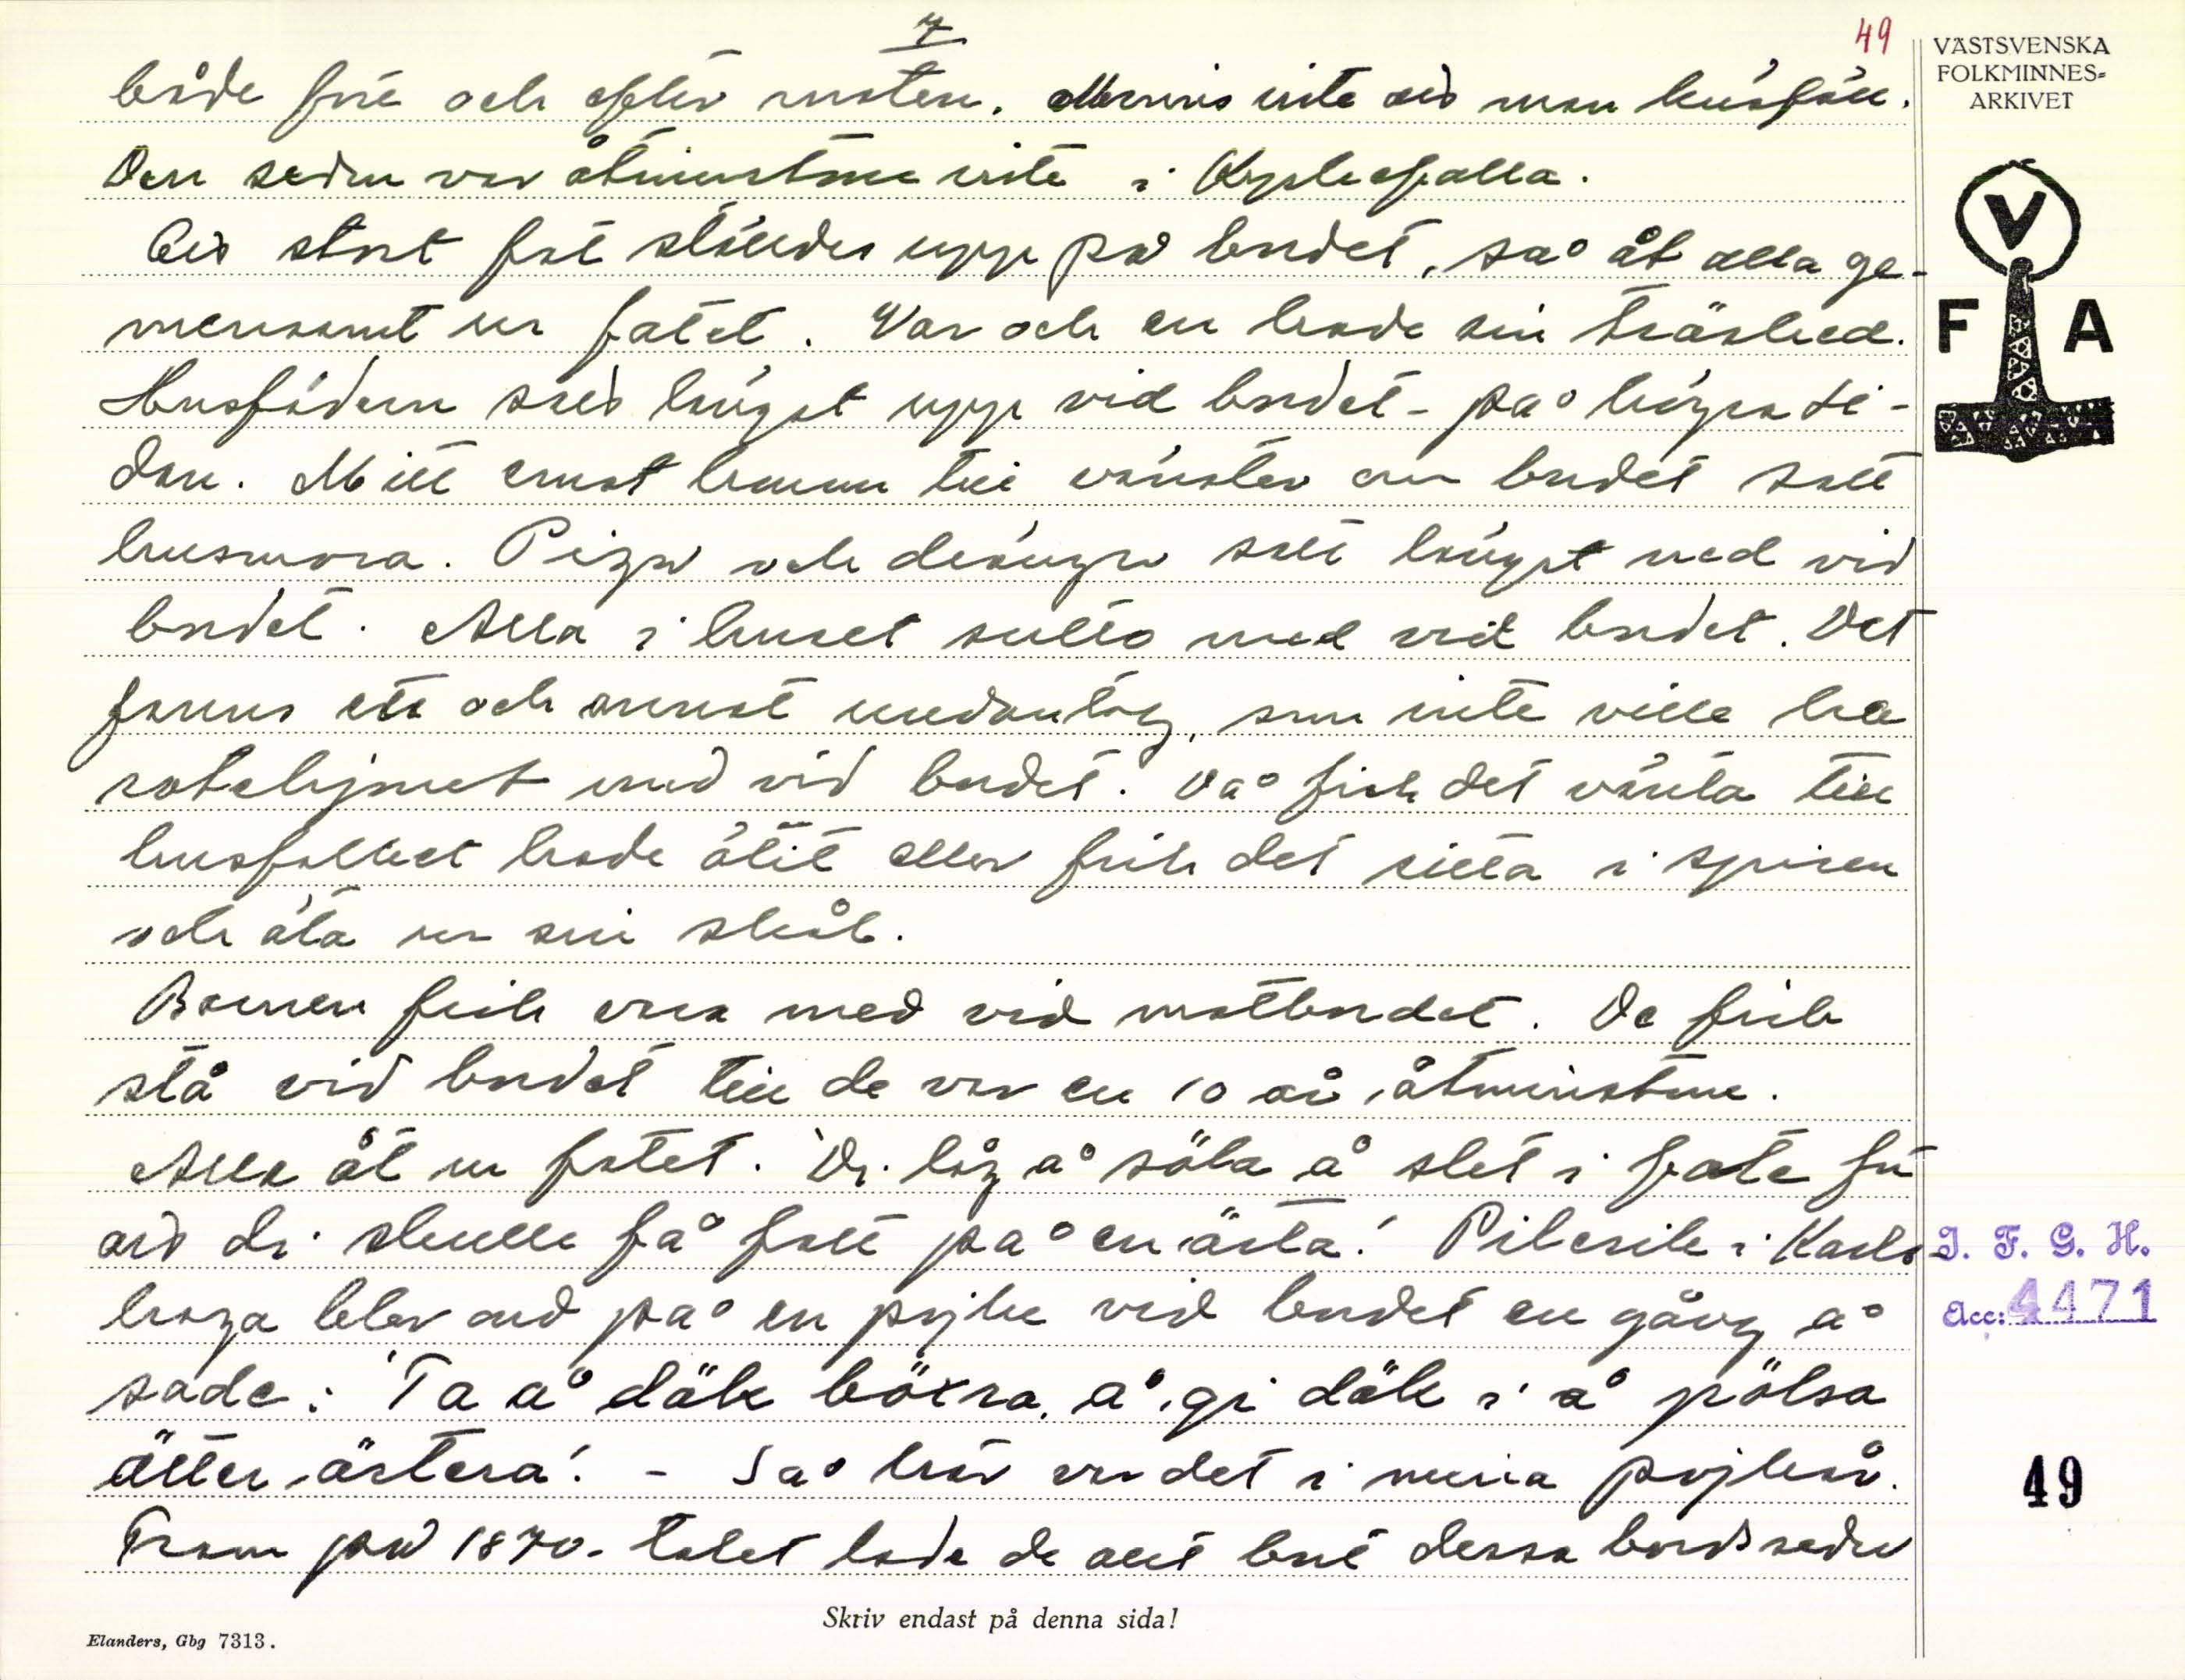 7
49
både före och efter maten. Minns inte att man knäföll.
Den seden var åtminstone inte i Kyrkefalla.
Ett stort fat ställdes upp på bordet, så åt alla ge-
mensamt ur fatet. Var och en hade sin träsked.
Husfadern satt längst upp vid bordet - på högra si-
dan. Mitt emot honom till vänster om bordet satt
husmora. Pigor och drängar satt längst ned vid
bordet. Alla i huset sutto med vid bordet. Det
fanns ett och annat undantag, som inte ville ha
rotehjonet med vid bordet. Då fick det vänta till
husfolket hade ätit eller fick det sitta i spisen
och äta ur sin skål.
Barnen fick vara med vid matbordet. De fick
stå vid bordet till de var en 10 år, åtminstone.
Alla åt ur fatet. "Di låg å söla å slet i fate för
att di skulle få fatt på en ärta." Pilerik i Karls
haga blev ond på en pojke vid bordet en gång å
sade: "Ta å däk böxra, å gi däk i å pölsa
ätter ärtera." - Så här var det i mina pojkår.
Fram på 1870-talet lade de allt bort dessa bordseder
Skriv endast på denna sida!
Elanders, Gbg 7313.
VÄSTSVENSKA
FOLKMINNES-
ARKIVET
V
F A
I. F. G. H.
Acc: 4471
49